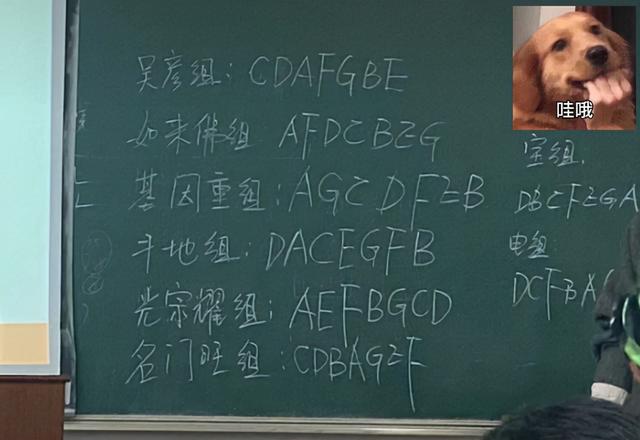 吴彦组：CDAFGBE
如来佛组：AFDCBEG
基因重组：AGCDFEB
斗地组：DACEGFB
光宗耀组：AEFBGCD
名门旺组：CDBAGEF
哇哦
室组.
DBCFEGA
电组:
DCFBA